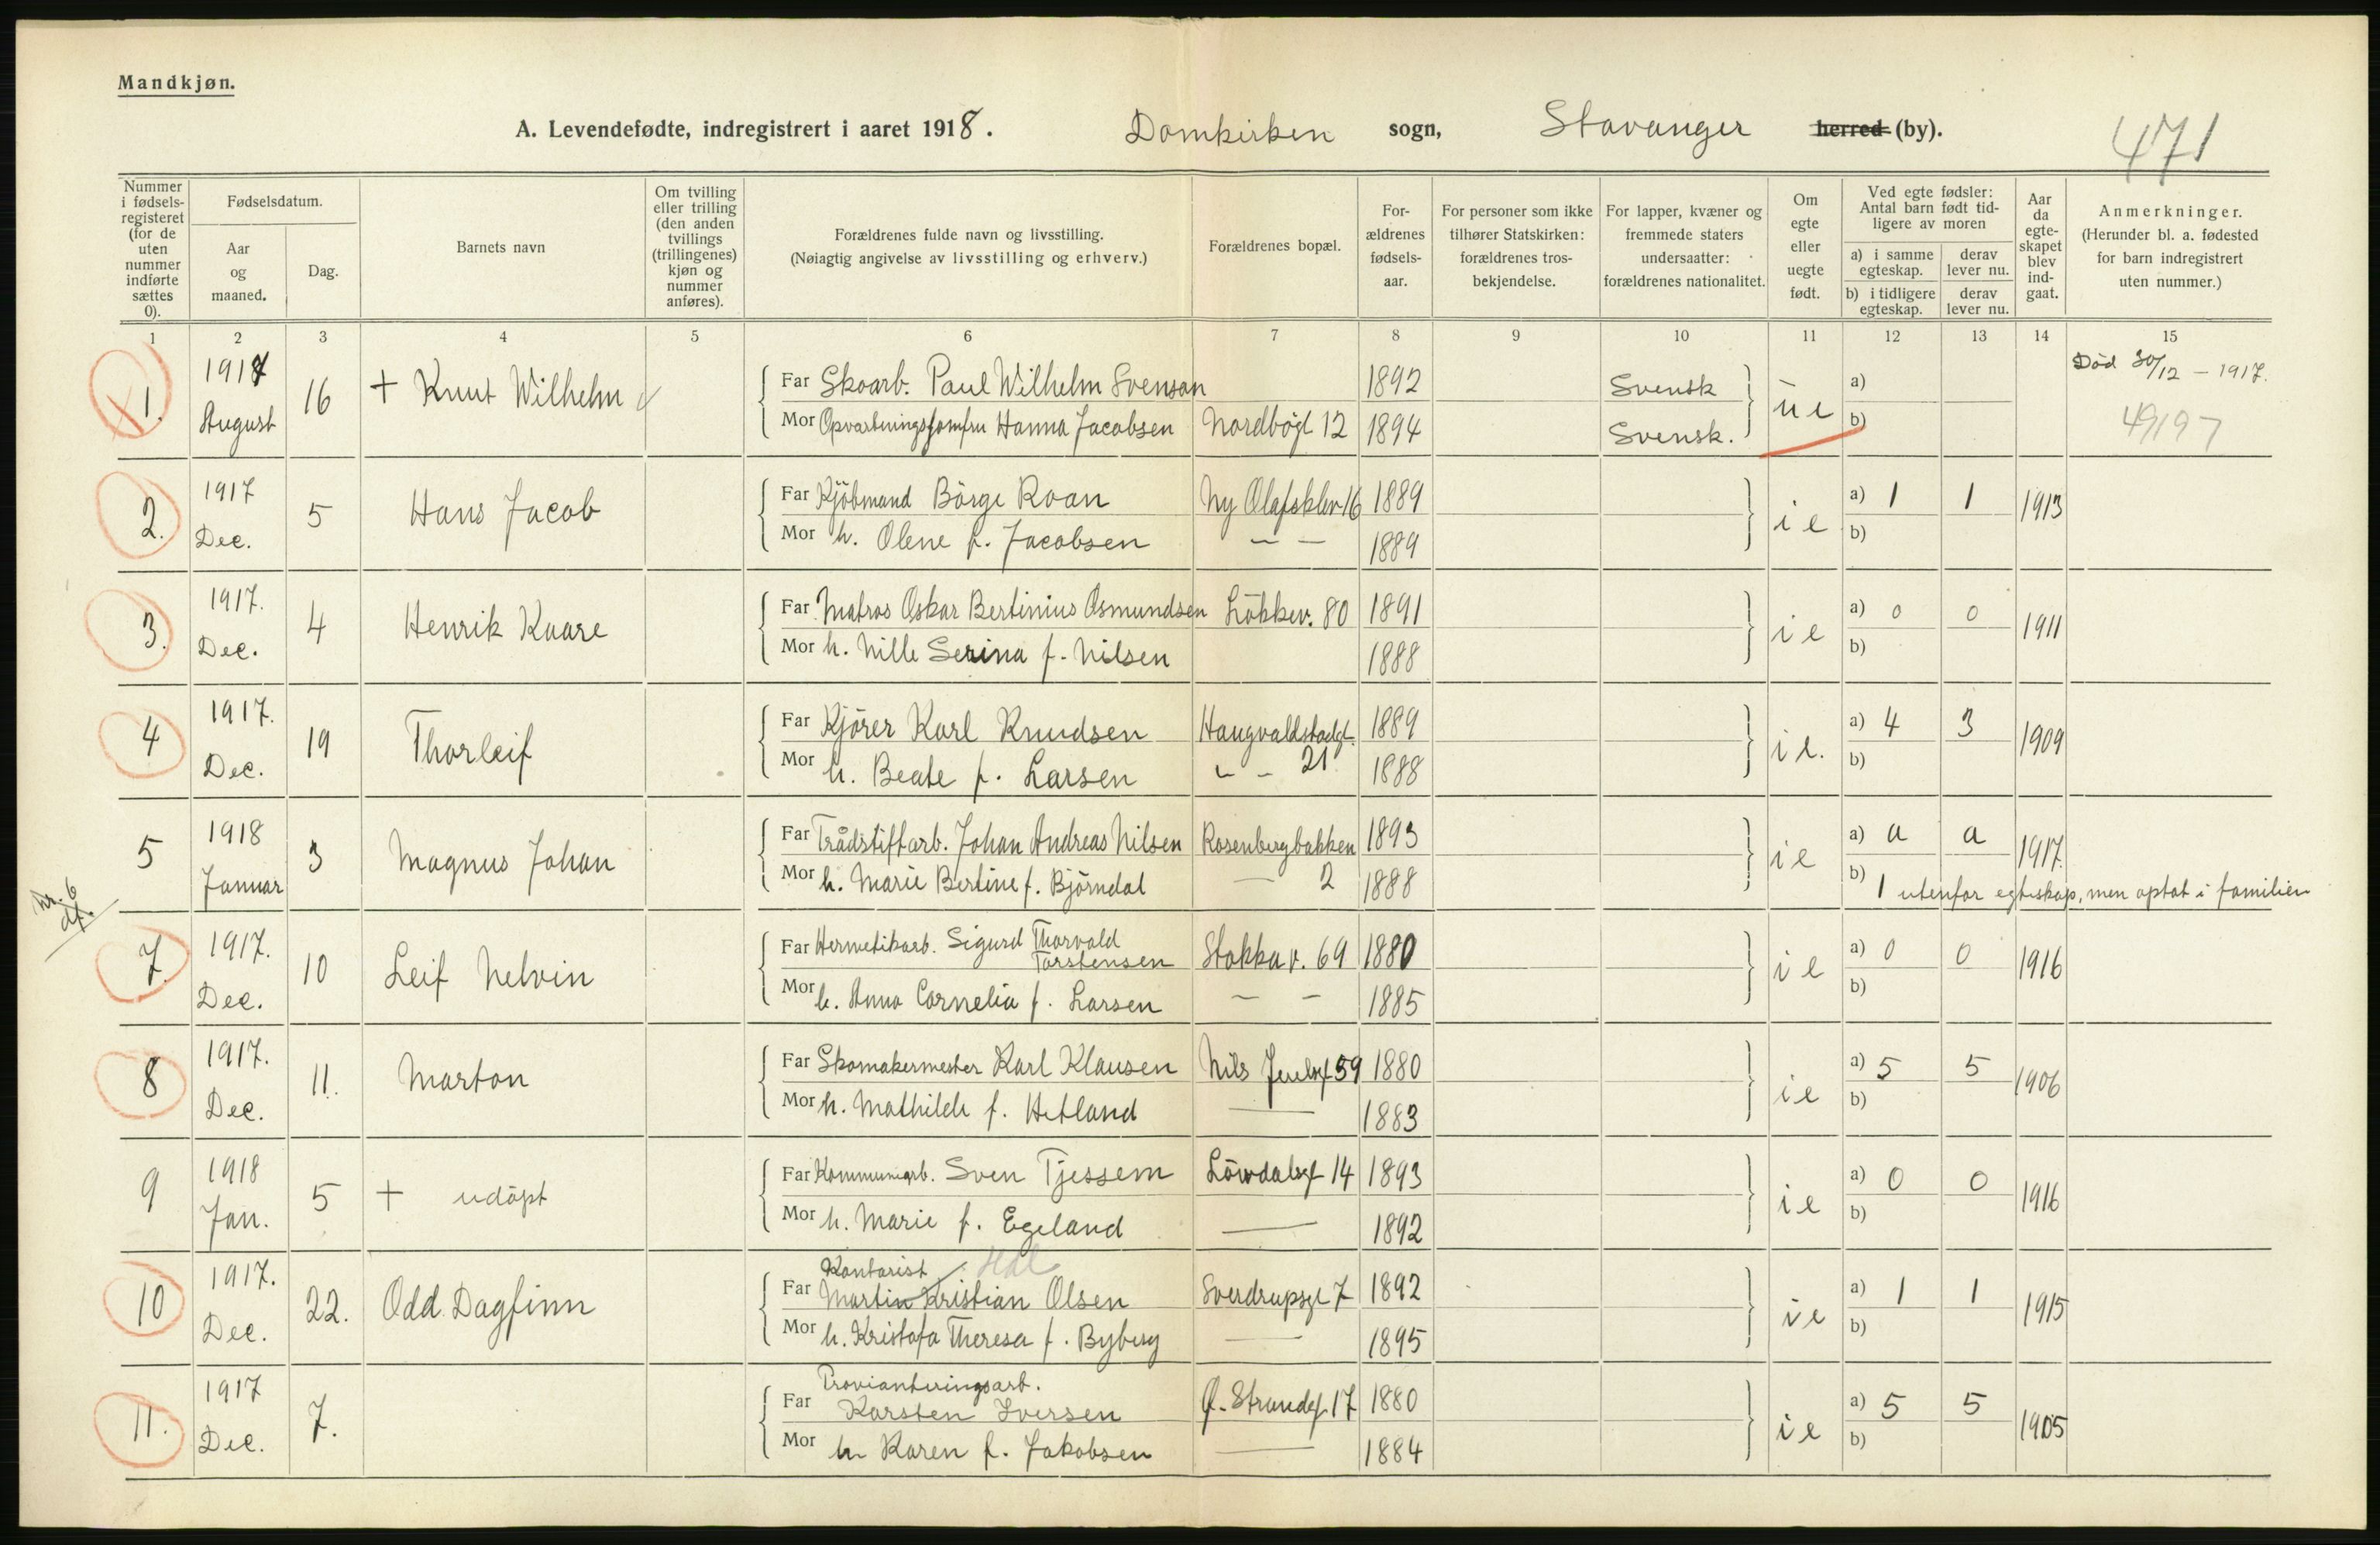 Mandkjøn.
A. Levendefødte, indregistrert i aaret 1918. Domkirken sogn, Stavanger herred (by).
471
Nummer i fødsels-registeret (for de uten nummer indførte sættes 0).
Fødselsdatum.
Aar og maaned.
Dag.
Barnets navn
Om tvilling eller trilling (den anden tvillings (trillingenes) kjøn og nummer anføres).
Forældrenes fulde navn og livsstilling.
(Nøiagtig angivelse av livsstilling og erhverv.)
Forældrenes bopæl.
For-ældrenes fødsels-aar.
For personer som ikke tilhører Statskirken: forældrenes tros-bekjendelse.
For lapper, kvæner og fremmede staters undersaatter: forældrenes nationalitet.
Om egte eller uegte født.
Ved egte fødsler: Antal barn født tid-ligere av moren
a) i samme egteskap.
derav lever nu.
b) i tidligere egteskap.
derav lever nu.
Aar da egte-skapet blev ind-gaat.
Anmerkninger.
(Herunder bl. a. fødested for barn indregistrert uten nummer.)
1 2 3 4 5 6 7 8 9 10 11 12 13 14 15
1. 1917 August 16 + Knut Wilhelm
Far Skoarb. Paul Wilhelm Svenson 1892 Svensk
Mor Opvartningsjomfru Hanna Jacobsen Nordbøgt 12 1894 Svensk.
ue a) b)
Død 30/12 - 1917.
49197
2. 1917 Dec. 5 Hans Jacob
Far Kjöbmand Börge Roan Ny Olafsklev 16 1889
Mor h. Olene f. Jacobsen — — 1889
ie a) 1 1 b) 1913
3. 1917. Dec. 4 Henrik Kaare
Far Matros Oskar Bertinius Osmundsen Lökkev. 80 1891
Mor h. Nille Serina f. Nilsen 1888
ie a) 0 0 b) 1911
4 1917. Dec. 19 Thorleif
Far Kjörer Karl Knudsen Haugvaldstadgt. 1889
Mor h. Beate f. Larsen 21 1888
ie. a) 4 3 b) 1909
5 1918 Januar 3 Magnus Johan
Far Trådstiftarb. Johan Andreas Nilsen Rosenbergbakken 1893
Mor h. Marie Bertine f. Björndal — 2 1888
ie a) a a b) 1917.
1 utenfor egteskap, men optat i familien
Nr. 6
7. 1917. Dec. 10 Leif Melvin
Far Hermetikarb. Sigurd Thorvald Torstensen Stokkav. 69 1880
Mor h. Anna Cornelia f. Larsen — — 1885
ie a) 0 0 b) 1916
8 1917. Dec. 11. Marton
Far Skomakermester Karl Klausen Nils Juelsgt 59 1880
Mor h. Mathilde f. Hetland — 1883
ie a) 5 5 b) 1906
9 1918 Jan. 5 + udöpt
Far Kommunearb. Sven Tjessem Lövdalsgt 14 1893
Mor h. Marie f. Egeland — 1892
ie a) 0 0 b) 1916
10 1917. Dec. 22. Odd Dagfinn
Kontorist
Far Martin Kristian Olsen Sverdrupsgt 7 1892
Mor h. Kristofa Theresa f. Byberg — 1895
ie a) 1 1 b) 1915
11. 1917 Dec. 7.
Provianteringsarb.
Far Karsten Iversen Ø. Strandgt 17 1880
Mor h. Karen f. Jakobsen — 1884
ie a) 5 5 b) 1905